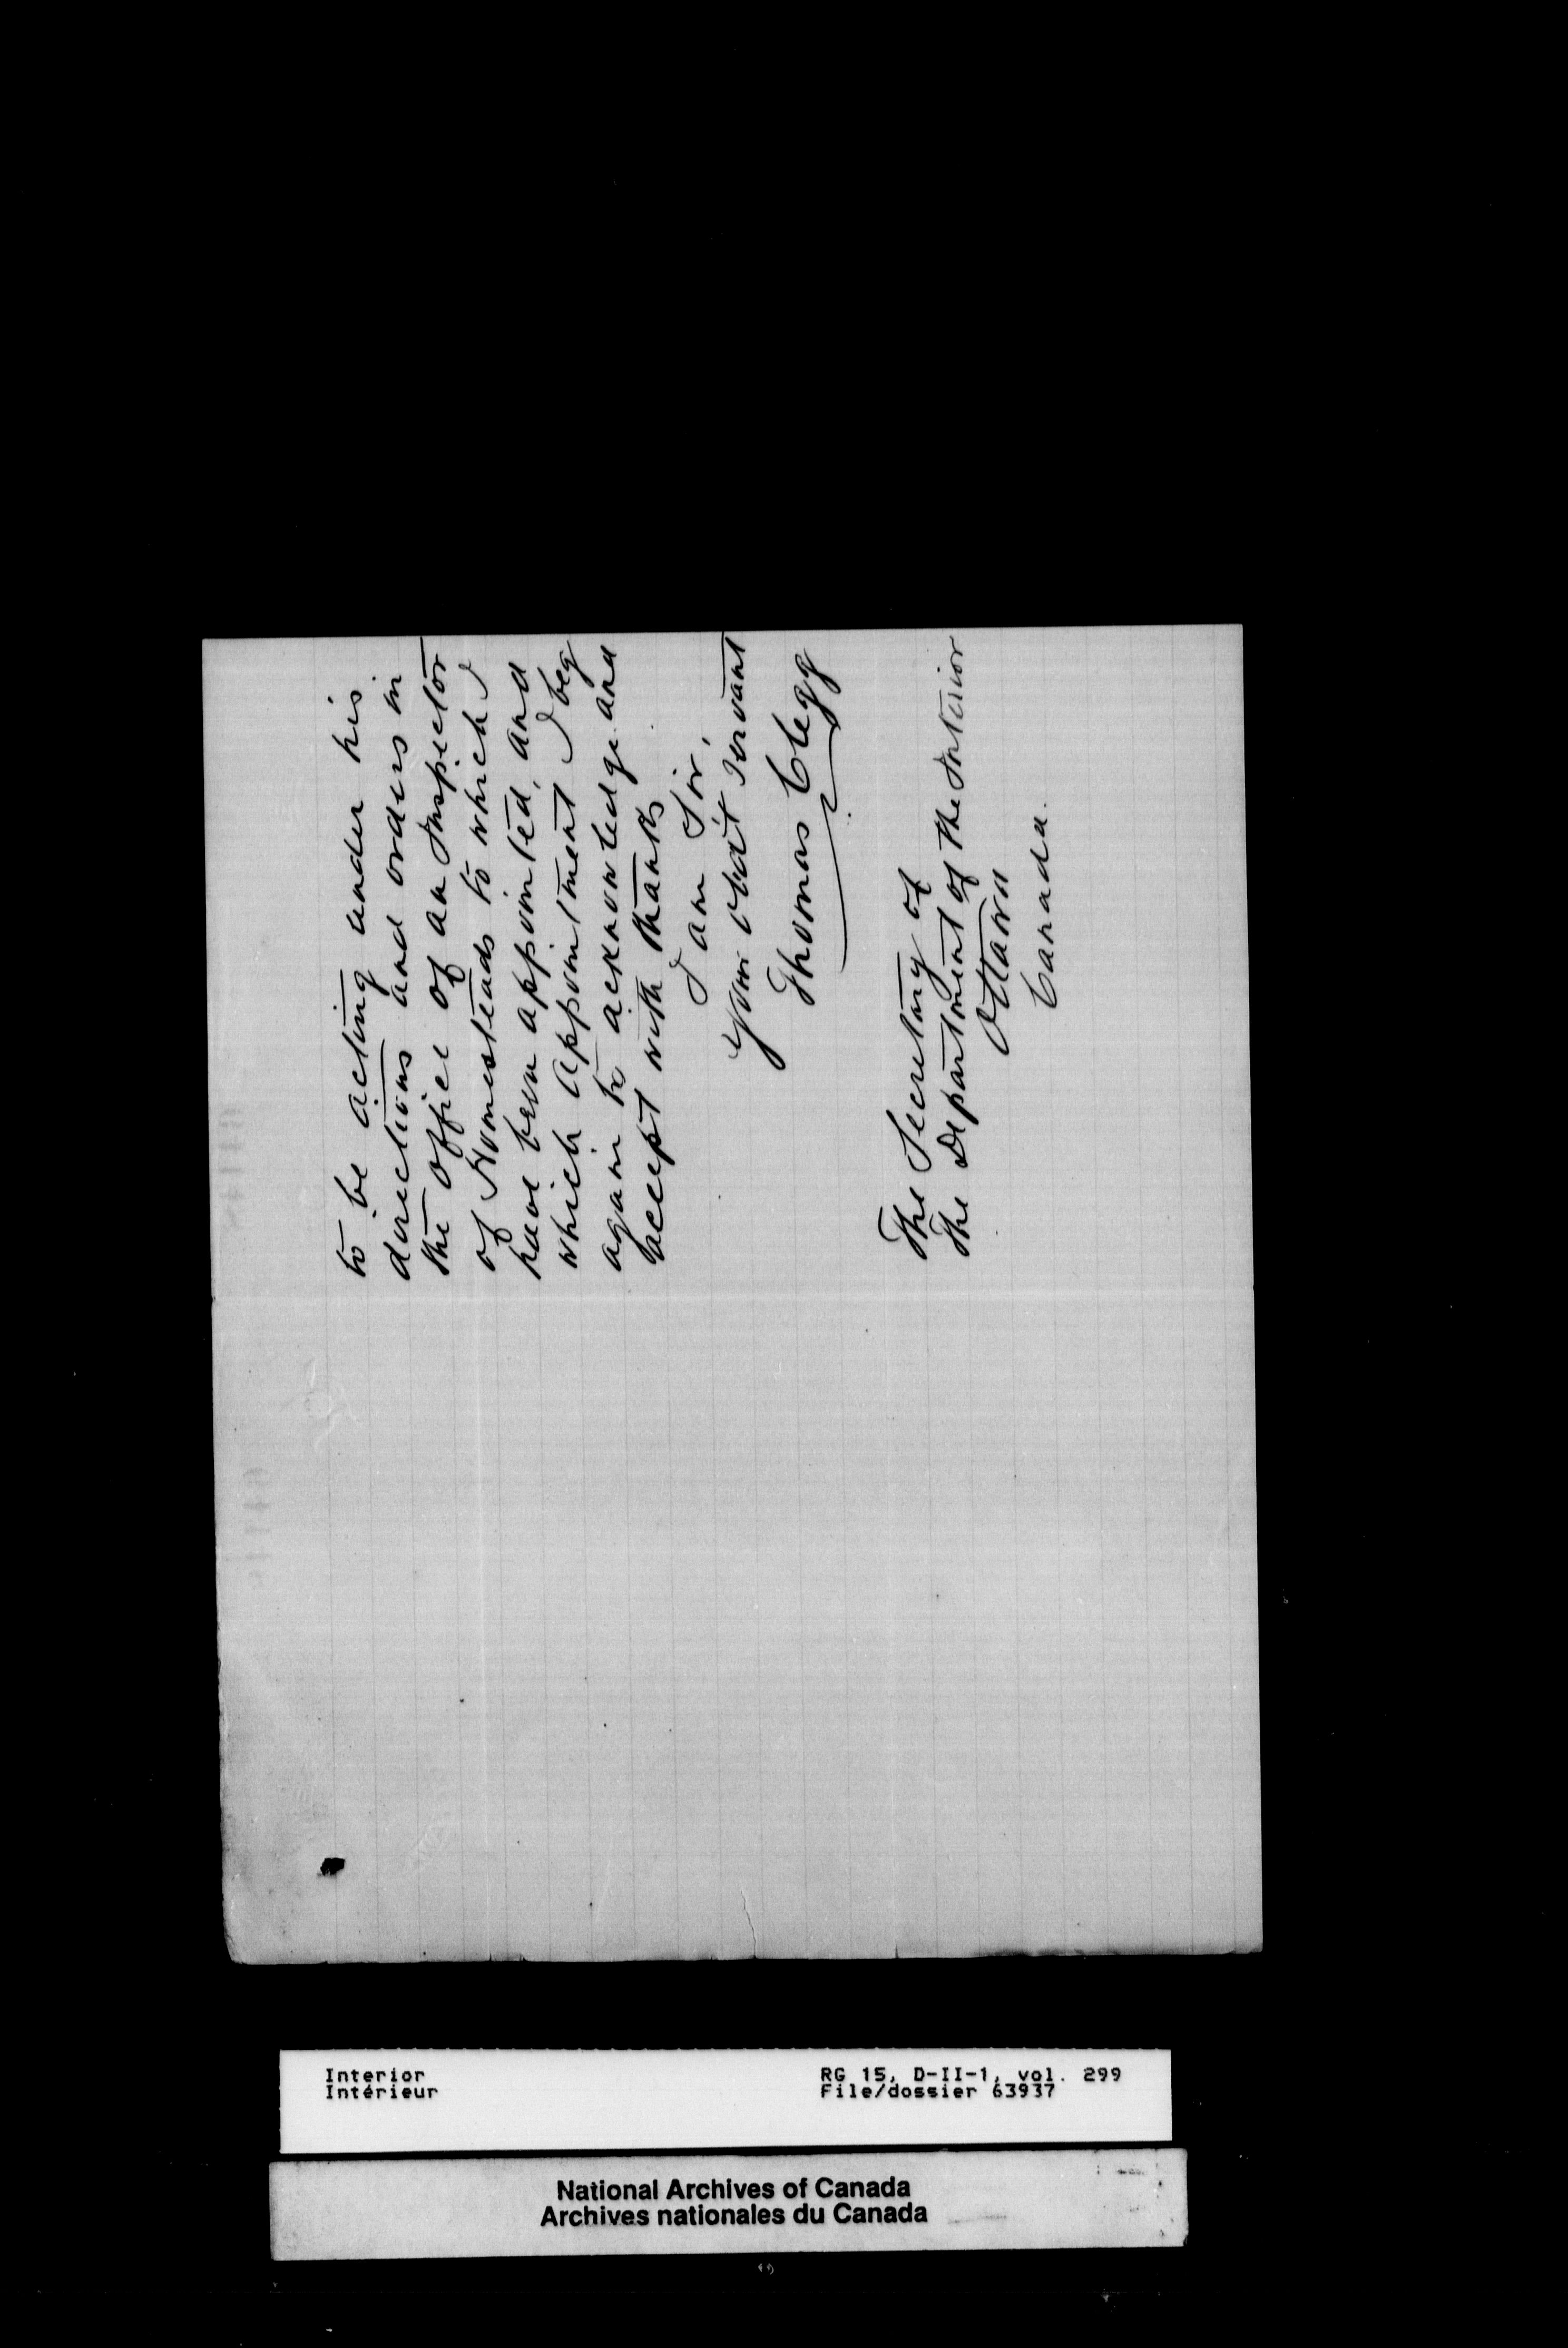 to be acting under his
directions and orders in
the office of an Inspector
of Homesteads to which I
have been appointed, and
which appointment I beg
again to acknowledge and
accept with thanks
I am Sir,
Your obdt servant
Thomas Clegg
The Secretary of
The Department of the Interior
Ottawa
Canada.
Interior
Intérieur
RG 15, D-II-1, vol. 299
File/dossier 63937
National Archives of Canada
Archives nationales du Canada